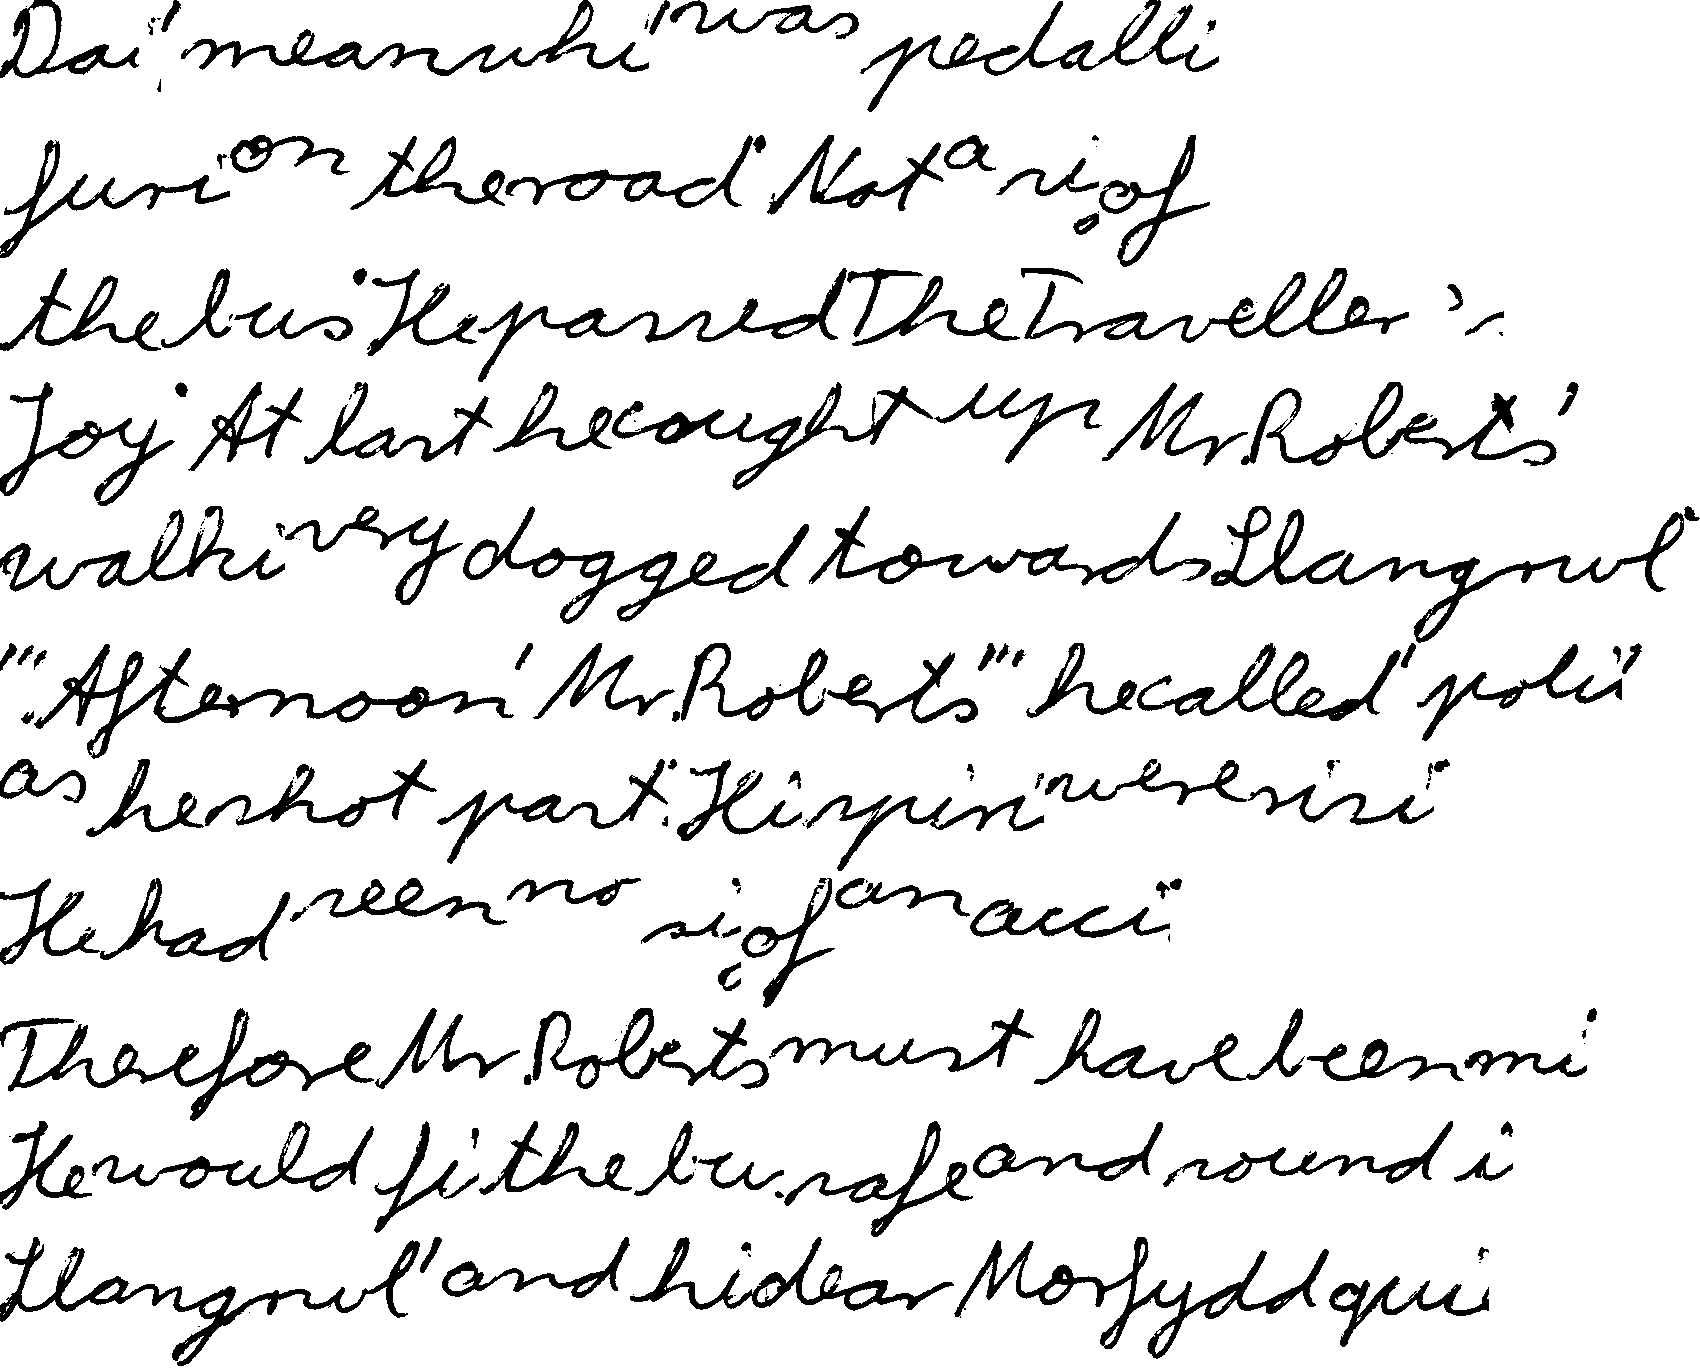 Dai' meanwhi' was pedalli
furi on the road. Not a si of
the bus. He passed The Traveller's
Joy. At last he caught up Mr. Roberts'
walki very dogged towards Llangrwl.
"'Afternoon' Mr. Roberts'" he called' poli'
as he shot past. Hi spiri were risi
He had seen no si of an acci
Therefore Mr. Roberts must have been mi
He would fi the bu safe and sound i
Llangrwl' and hi dear Morfydd qui